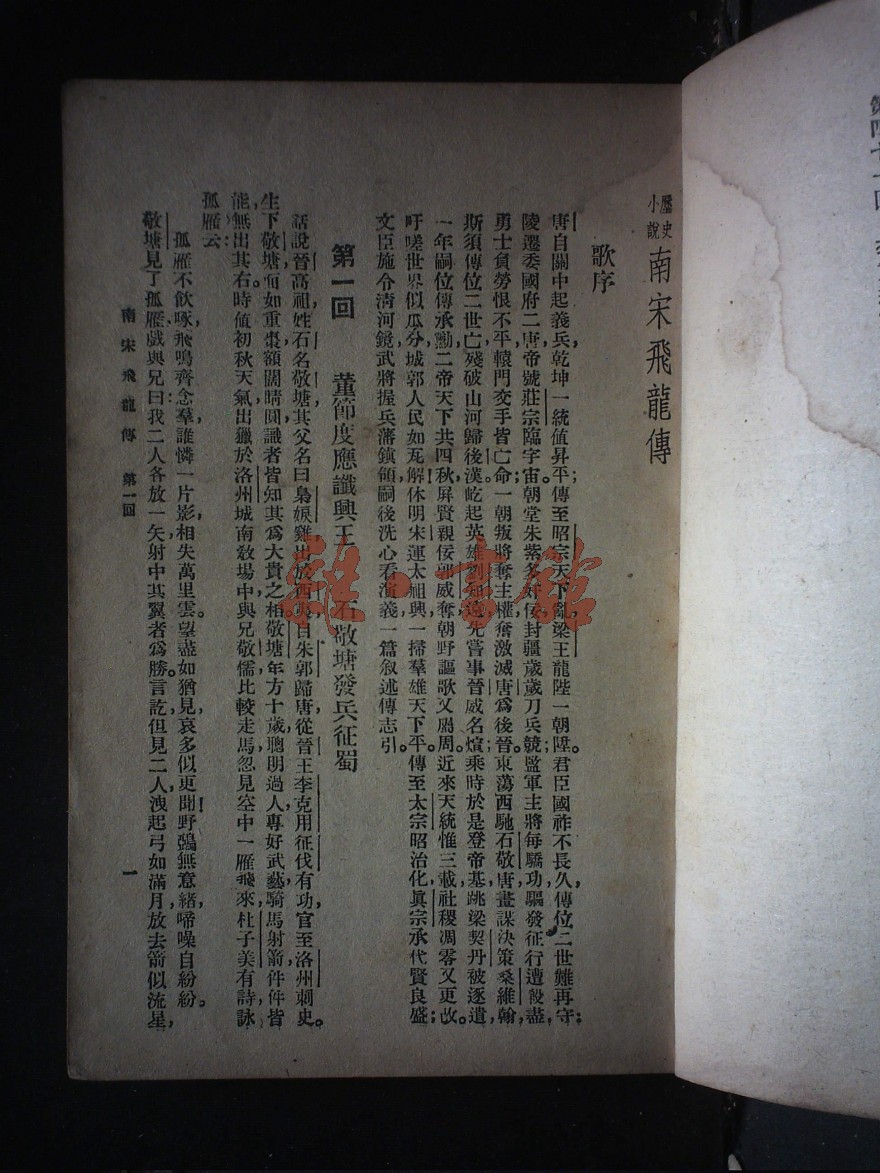 歷史小說 南宋飛龍傳
歌序
唐自關中起義兵，乾坤一統值昇平；傳至昭宗天下亂，梁王龍陛一朝陞。君臣國祚不長久，傳位二世難再守；
陵遷委國府二唐，帝號莊宗臨宇宙。朝堂朱紫多奸佞，封疆歲歲刀兵競；監軍主將每驕功，驅發征行遭毀盡，
勇士負勞恨不平，轅門交手皆亡命；一朝叛將奪主權，奮激滅唐爲後晉。東蕩西馳石敬唐，畫謀決策桑維翰，
斯須傳位二世亡，殘破山河歸後漢。屹起英雄劉知遠，先嘗事晉威名煊；乘時於是登帝基，跳梁契丹被逐遣，
一年嗣位傳承勳，二帝天下共四秋，屏賢親佞郭威奪，朝野謳歌又屬周。近來天統惟三載，社稷凋零又更改。
吁嗟世界似瓜分，城郭人民如瓦解！休明宋運太祖興，一掃羣雄天下平。傳至太宗昭治化，眞宗承代賢良盛；
文臣施令淸河鏡，武將握兵藩鎮領，嗣後洗心看演義，一篇叙述傳志引。
第一回 董節度應讖興王 石敬塘發兵征蜀
話說晉高祖姓石名敬塘，其父名曰梟捩雞，出於西夷，自朱郭歸唐，從晉王李克用征伐有功，官至洛州刺史。
生下敬塘，面如重棗，額闊睛圓，識者皆知其爲大貴之相。敬塘年方十歲，聰明過人，專好武藝，騎馬射箭，件件皆
能，無出其右。時值初秋天氣，出獵於洛州城南敎場中，與兄敬儒比較走馬，忽見空中一雁飛來，杜子美有詩詠
孤雁云：
孤雁不飲啄，飛鳴齊念羣，誰憐一片影，相失萬里雲。望盡如猶見，哀多似更聞！野鴉無意緒，啼噪自紛紛。
敬塘見了孤雁，戲與兄曰：我二人各放一矢，射中其翼者爲勝。言訖，但見二人洩起弓如滿月，放去箭似流星，
南宋飛龍傳 第一回 一
第四十一回
雒·書館